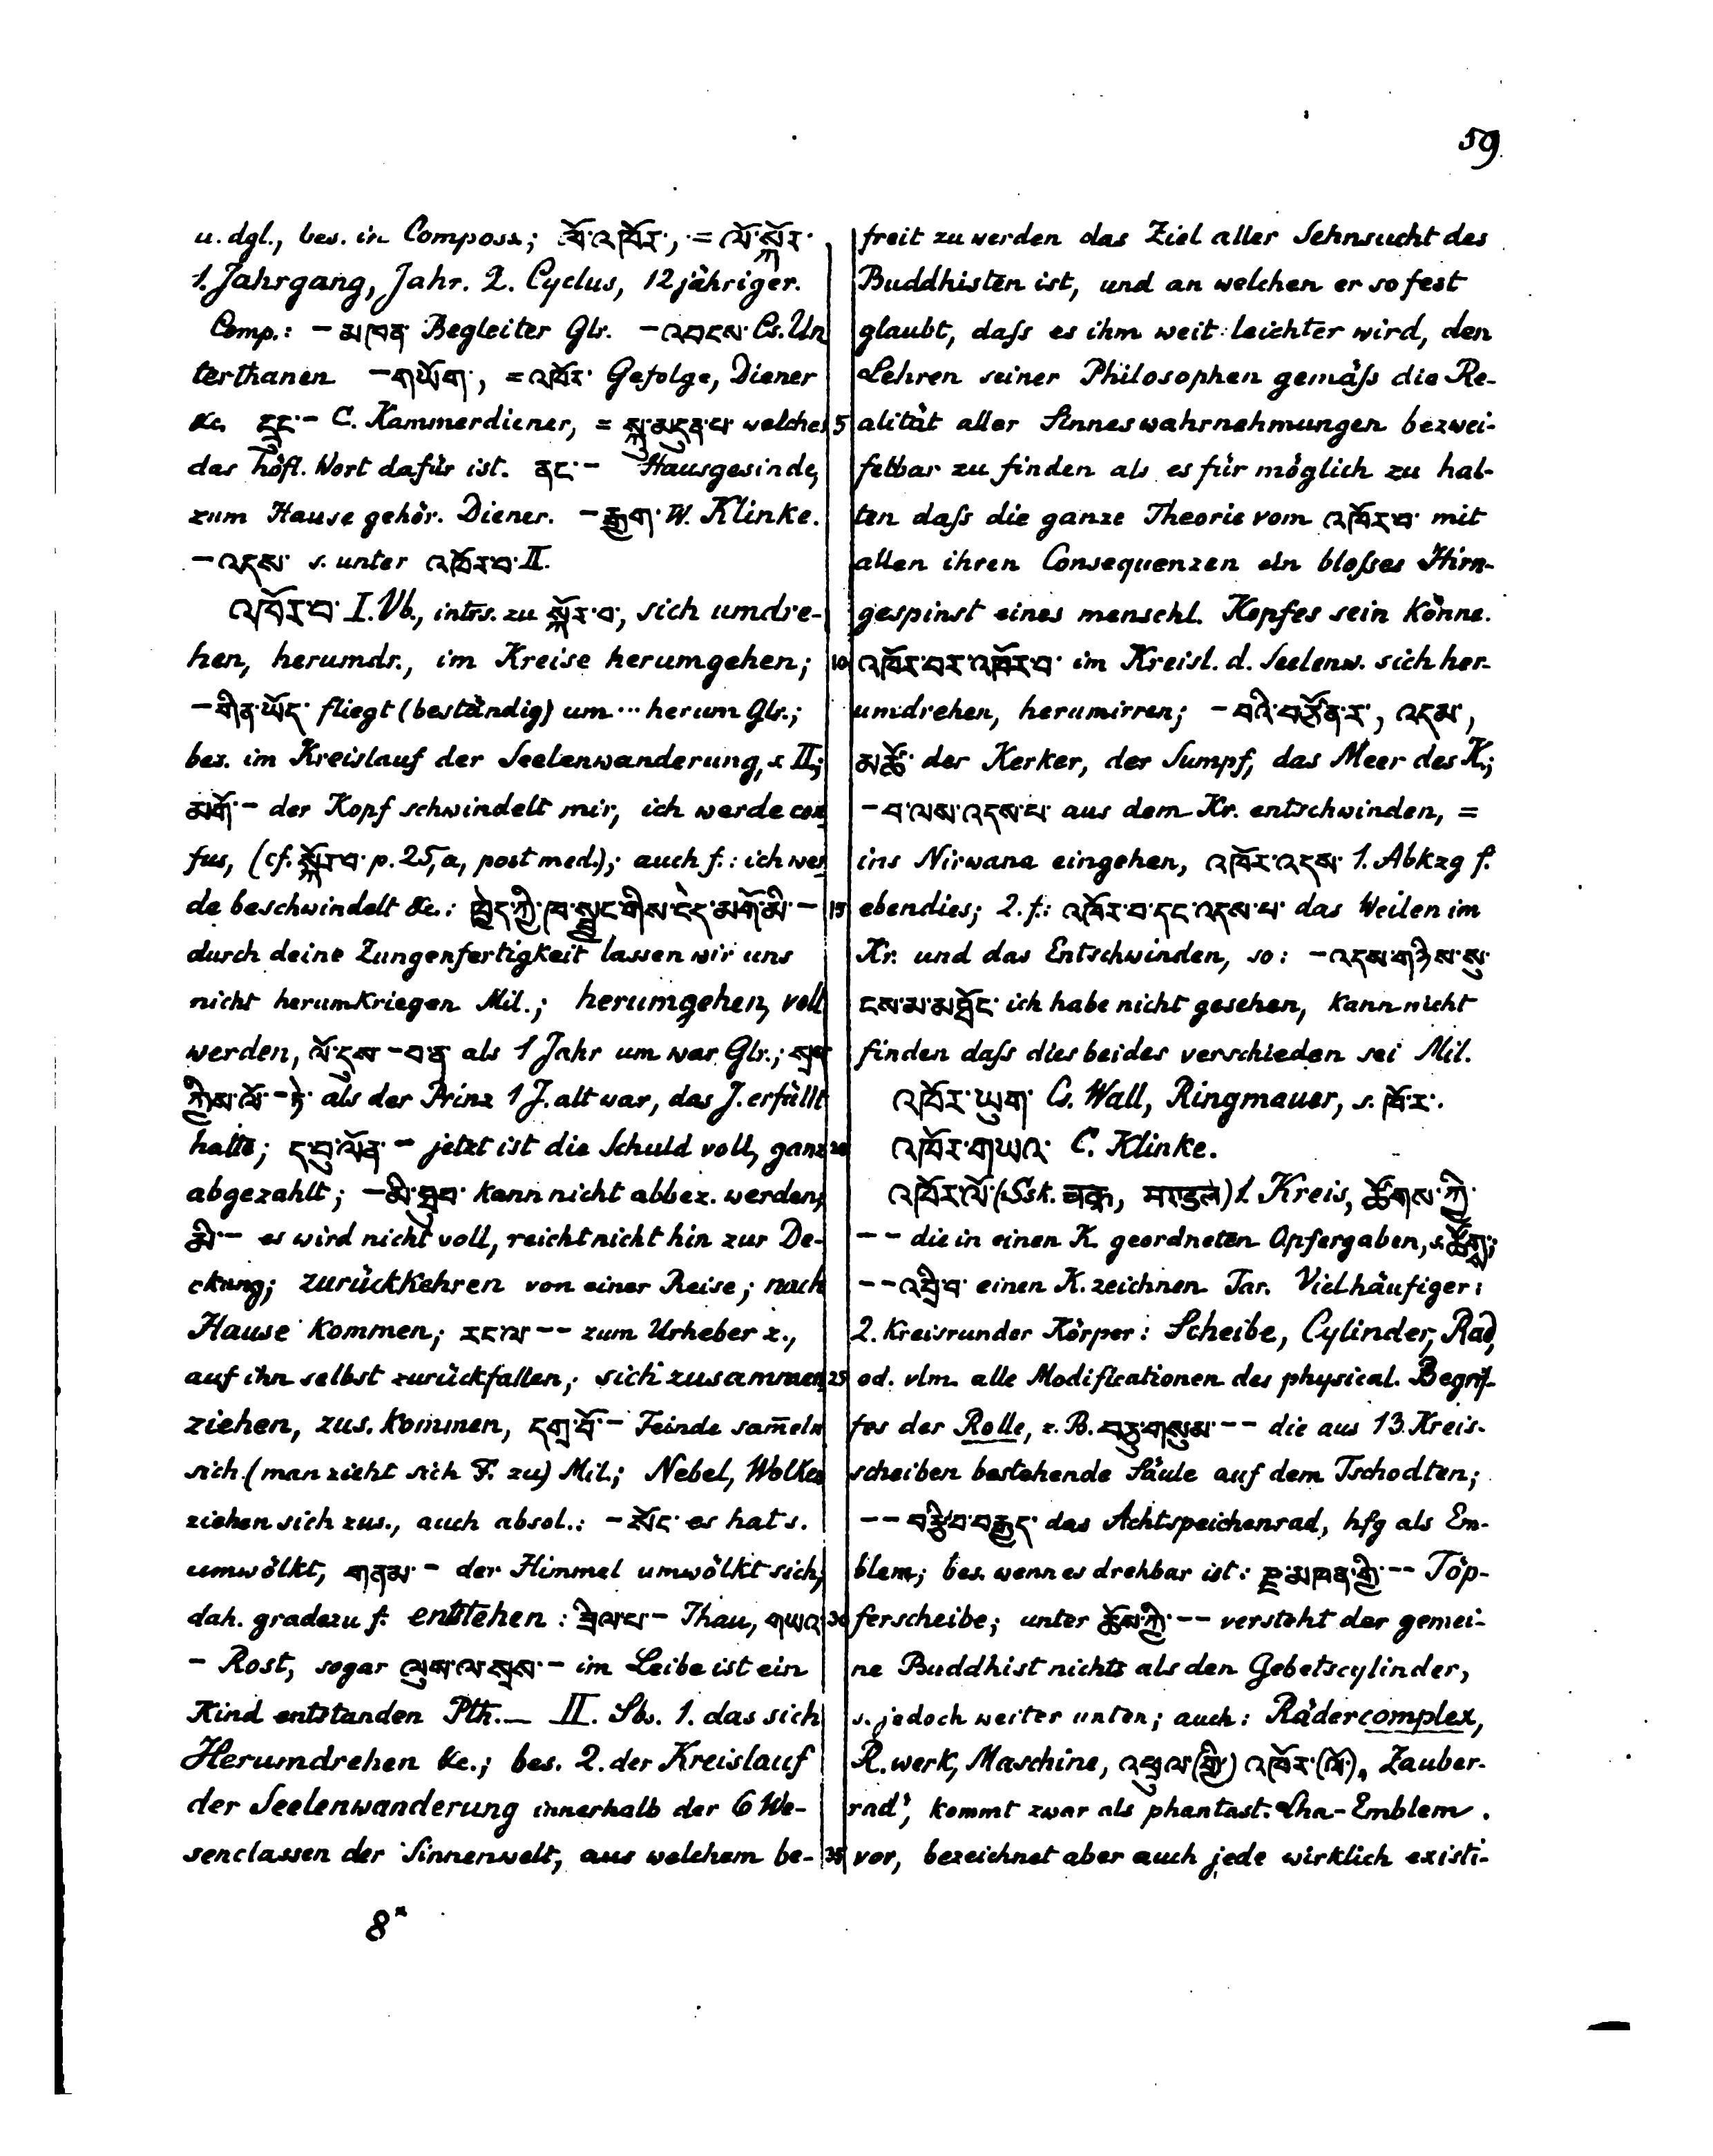 59
u. dgl., bes. in Composs; ལོ་འཁོར་, = ལོ་སྐོར་
1. Jahrgang, Jahr. 2. Cyclus, 12jähriger.
Comp.: – མཁན་ Begleiter Glr. – འབངས་ Cs. Un
terthanen – གཡོག་, = འཁོར་ Gefolge, Diener
&c. དྲུང་ – C. Kammerdiener, = སྐུ་མདུན་པ་ welches
das höfl. Wort dafür ist. ནང་ – Hausgesinde,
zum Hause gehör. Diener. – རྒྱག་ W. Klinke.
– འདས་ s. unter འཁོར་བ་ II.
འཁོར་བ་ I. Vb., intrs. zu སྐོར་བ་, sich umdre-
hen, herumdr., im Kreise herumgehen;
– གིན་ཡོད་ fliegt (beständig) um ... herum Glr.;
bes. im Kreislauf der Seelenwanderung, s. II;
མགོ་ – der Kopf schwindelt mir, ich werde con
fus, (cf. སྐོར་བ་ p. 25, a, post med.); auch f.: ich wer
de beschwindelt &c.: ཁྱེད་ཀྱི་ཁ་སྦྱང་གིས་ངེད་མགོ་མི་ –
durch deine Zungenfertigkeit lassen wir uns
nicht herumkriegen Mil.; herumgehen, voll
werden, ལོ་དུས་ – བ་ན་ als 1 Jahr um war Glr.; སྲས་
ཀྱིས་ལོ་ – ཏེ་ als der Prinz 1 J. alt war, das J. erfüllt
hatte; ད་བུ་ལོན་ – jetzt ist die Schuld voll, ganz
abgezahlt; – མི་ཐུབ་ kann nicht abbez. werden,
མི་ – es wird nicht voll, reicht nicht hin zur De-
ckung; zurückkehren von einer Reise; nach
Hause kommen; རང་ལ་ – – zum Urheber z.,
auf ihn selbst zurückfallen; sich zusammen
ziehen, zus. kommen, དགྲ་བོ་ – Feinde sam̄eln
sich (man zieht sich F. zu) Mil.; Nebel, Wolken
ziehen sich zus., auch absol.: – སོང་ es hat s.
umwölkt, གནམ་ – der Himmel umwölkt sich,
dah. gradezu f. entstehen: ཟིལ་པ་ – Thau, གཡའ་
– Rost, sogar ལུས་ལ་སྲས་ – im Leibe ist ein
Kind entstanden Pth. – II. Sbs. 1. das sich
Herumdrehen &c.; bes. 2. der Kreislauf
der Seelenwanderung innerhalb der 6 We-
senclassen der Sinnenwelt, aus welchem be-
8*
freit zu werden das Ziel aller Sehnsucht des
Buddhisten ist, und an welchen er so fest
glaubt, daſs es ihm weit leichter wird, den
Lehren seiner Philosophen gemäſs die Re-
5 alität aller Sinneswahrnehmungen bezwei-
felbar zu finden als es für möglich zu hal-
ten daſs die ganze Theorie vom འཁོར་བ་ mit
allen ihren Consequenzen ein bloſses Hirn-
gespinst eines menschl. Kopfes sein könne.
10 འཁོར་བར་འཁོར་བ་ im Kreisl. d. Seelenw. sich her-
umdrehen, herumirren; – བའི་བཙོན་ར་, འདམ་,
མཚོ་ der Kerker, der Sumpf, das Meer des K.;
– བ་ལས་འདས་པ་ aus dem Kr. entschwinden, =
ins Nirwana eingehen, འཁོར་འདས་ 1. Abkzg f.
15 ebendies; 2. f.: འཁོར་བ་དང་འདས་པ་ das Weilen im
Kr. und das Entschwinden, so: – འདས་གཉིས་སུ་
ངས་མ་མཐོང་ ich habe nicht gesehen, kann nicht
finden daſs dies beides verschieden sei Mil.
འཁོར་ཡུག་ Cs. Wall, Ringmauer, s. ཁོ་ར་.
20 འཁོར་གཡའ་ C. Klinke.
འཁོར་ལོ་ (Ssk. चक्र, मण्डल) 1. Kreis, ཚོགས་ཀྱི་
– – die in einen K. geordneten Opfergaben, s. ཚོགས་;
– – འབྲི་བ་ einen K. zeichnen Tar. Viel häufiger:
2. kreisrunder Körper: Scheibe, Cylinder, Rad,
25 od. vlm. alle Modificationen des physical. Begrif-
fes der Rolle, z. B. བཅུ་གསུམ་ – – die aus 13 Kreis-
scheiben bestehende Säule auf dem Tschodten;
– – བརྩིབ་བརྒྱད་ das Achtspeichenrad, hfg als Em-
blem; bes. wenn es drehbar ist: རྫ་མཁན་གྱི་ – – Töp-
30 ferscheibe; unter ཆོས་ཀྱི་ – – versteht der gemei-
ne Buddhist nichts als den Gebetscylinder,
s. jedoch weiter unten; auch: Rädercomplex,
R. werk, Maschine, འཕྲུལ་(གྱི་) འཁོར་(ལོ་), Zauber-
rad', kommt zwar als phantast. Lha-Emblem
35 vor, bezeichnet aber auch jede wirklich existi-